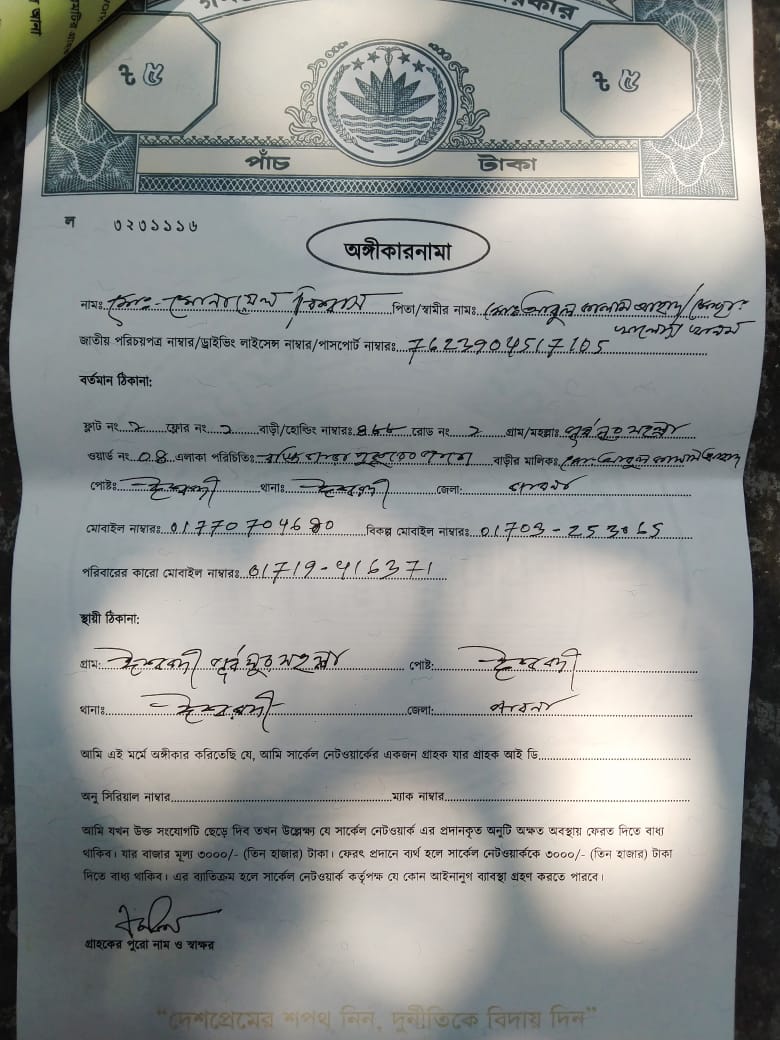 ৳ ৫
৳ ৫
পাঁচ টাকা
ল ৩২৩১১১৬
অঙ্গীকারনামা
নামঃ মোঃ- বিশ্বাস পিতা/স্বামীর নামঃ মোঃ আবুল কালাম আজাদ
জাতীয় পরিচয়পত্র নাম্বার/ড্রাইভিং লাইসেন্স নাম্বার/পাসপোর্ট নাম্বারঃ 7623904517105
বর্তমান ঠিকানা:
ফ্লাট নং ২ ফ্লোর নং ২ বাড়ী/হোল্ডিং নাম্বারঃ রোড নং ২ গ্রাম/মহল্লাঃ পূর্ব নুর মহল্লা
ওয়ার্ড নং 04 এলাকা পরিচিতিঃ বাড়ীর মালিকঃ মো: আবুল কালাম আজাদ
পোষ্টঃ ঈশ্বরদী থানাঃ ঈশ্বরদী জেলা: পাবনা
মোবাইল নাম্বারঃ 01770704680 বিকল্প মোবাইল নাম্বারঃ 01703-253065
পরিবারের কারো মোবাইল নাম্বারঃ 01719-416371
স্থায়ী ঠিকানা:
গ্রাম: ঈশ্বরদী পূর্ব নুর মহল্লা পোষ্ট: ঈশ্বরদী
থানাঃ ঈশ্বরদী জেলা: পাবনা
আমি এই মর্মে অঙ্গীকার করিতেছি যে, আমি সার্কেল নেটওয়ার্কের একজন গ্রাহক যার গ্রাহক আই ডি
অনু সিরিয়াল নাম্বার ম্যাক নাম্বার
আমি যখন উক্ত সংযোগটি ছেড়ে দিব তখন উল্লেক্ষ্য যে সার্কেল নেটওয়ার্ক এর প্রদানকৃত অনুটি অক্ষত অবস্থায় ফেরত দিতে বাধ্য
থাকিব। যার বাজার মূল্য ৩০০০/- (তিন হাজার) টাকা। ফেরৎ প্রদানে ব্যর্থ হলে সার্কেল নেটওয়ার্ককে ৩০০০/- (তিন হাজার) টাকা
দিতে বাধ্য থাকিব। এর ব্যাতিক্রম হলে সার্কেল নেটওয়ার্ক কর্তৃপক্ষ যে কোন আইনানুগ ব্যাবস্থা গ্রহণ করতে পারবে।
গ্রাহকের পুরো নাম ও স্বাক্ষর
“দেশপ্রেমের শপথ নিন, দুর্নীতিকে বিদায় দিন”